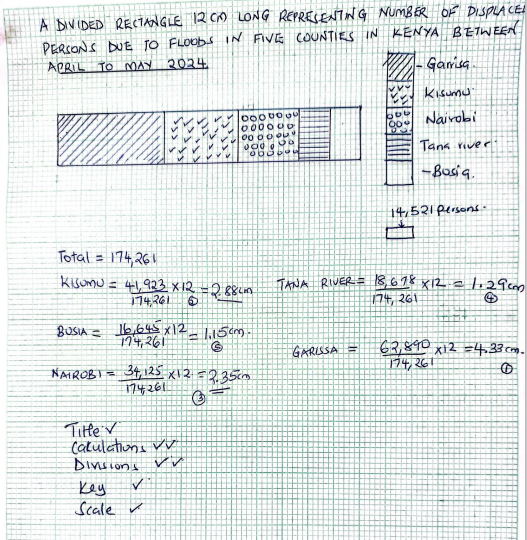 A DIVIDED RECTANGLE 12CM LONG REPRESENTING NUMBER OF DISPLACE
PERSONS DUE TO FLOODS IN FIVE COUNTIES IN KENYA BETWEEN
APRIL TO MAY 2024
- Garrisa.
Kisumu
Nairobi
Tana river
- Busia.
14,521 persons.
Total = 174,261
KISUMU = 41,923/174,261 x12 = 2.88cm ②
TANA RIVER = 18,678/174,261 x12 = 1.29cm ④
BUSIA = 16,645/174,261 x12 = 1.15cm. ⑤
GARISSA = 62,890/174,261 x12 = 4.33cm. ①
NAIROBI = 34,125/174,261 x12 = 2.35cm ③
Title ✓
Calculations ✓✓
Divisions ✓✓
Key ✓
Scale ✓